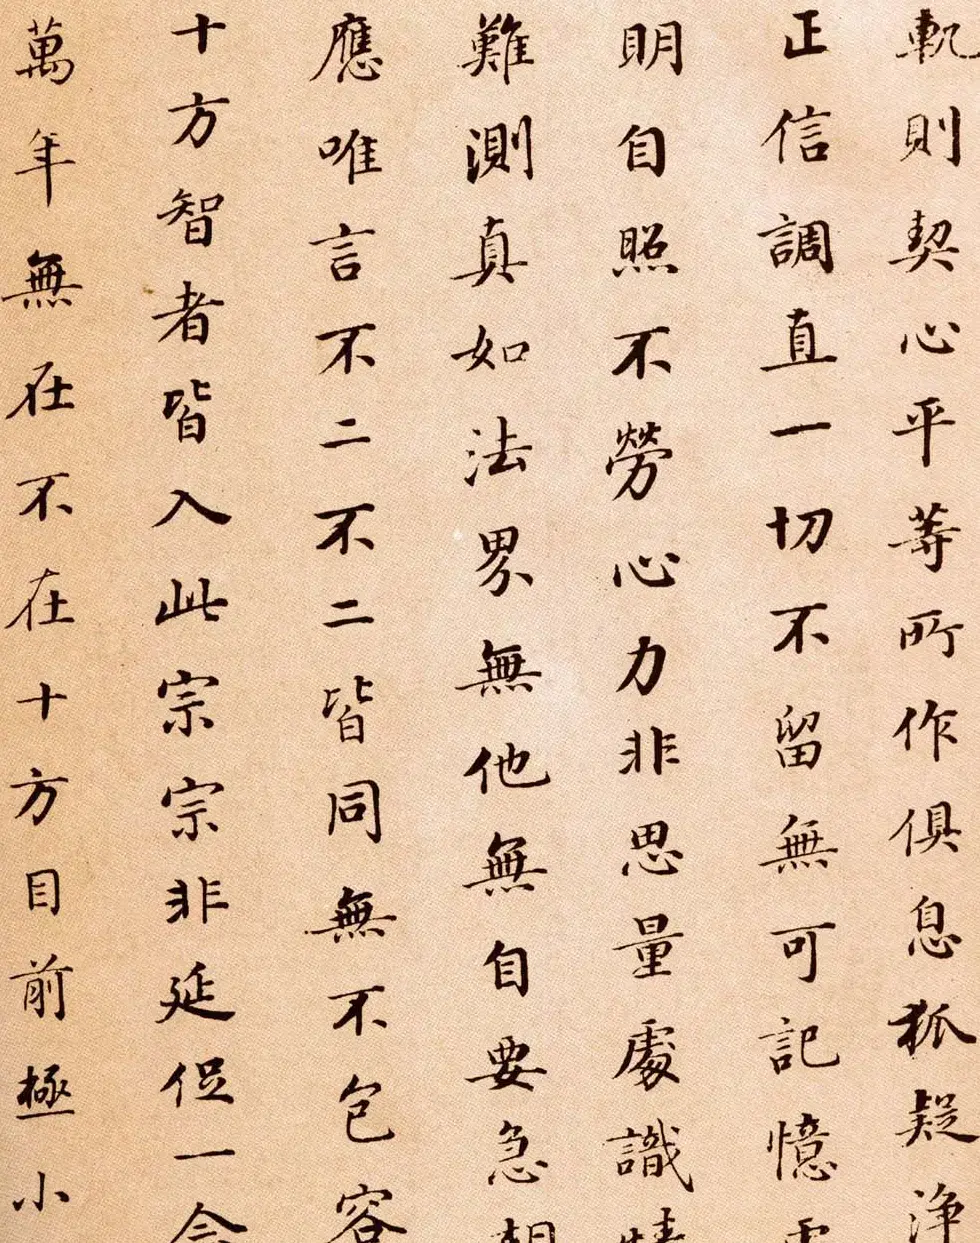 軌則契心平等所作俱息狐疑淨
正信調直一切不留無可記憶
明自照不勞心力非思量處識情
難測真如法界無他無自要急相
應唯言不二不二皆同無不包容
十方智者皆入此宗宗非延促一念
萬年無在不在十方目前極小